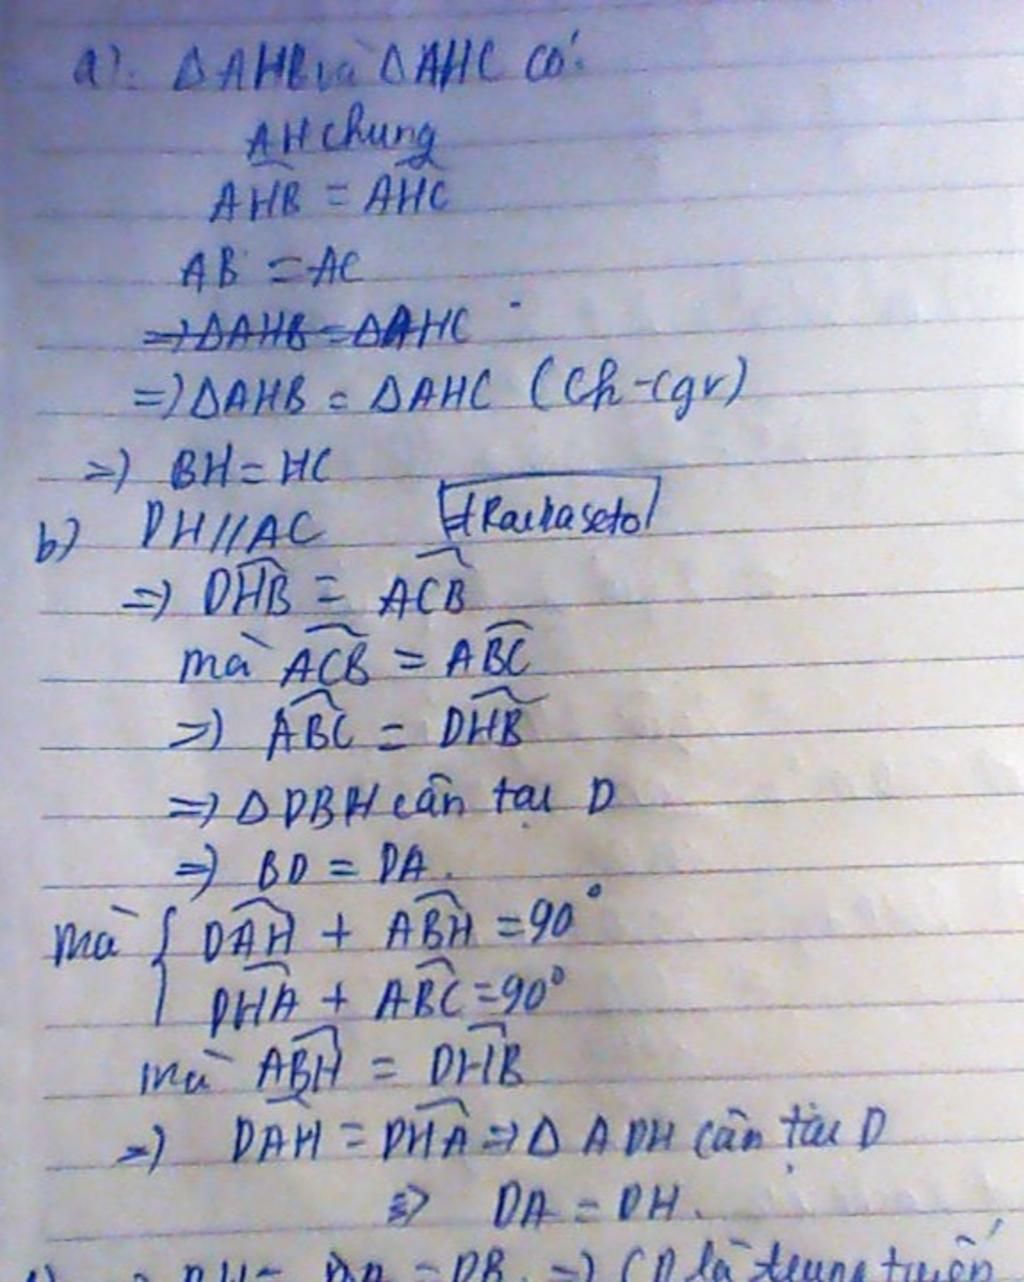 a). ΔAHB và ΔAHC có:
AH chung
AHB = AHC
AB = AC
=> ΔAHB = ΔAHC
=> ΔAHB = ΔAHC (Ch-cgv)
=> BH = HC
b) DH//AC
=> DHB = ACB
mà ACB = ABC
=> ABC = DHB
=> ΔDBH cân tại D
=> BD = DA.
mà { DAH + ABH = 90°
DHA + ABC = 90°
mà ABH = DHB
=> DAH = DHA => Δ ADH cân tại D
=> DA = DH.
=> DH = DA = DB => CD là trung tuyến